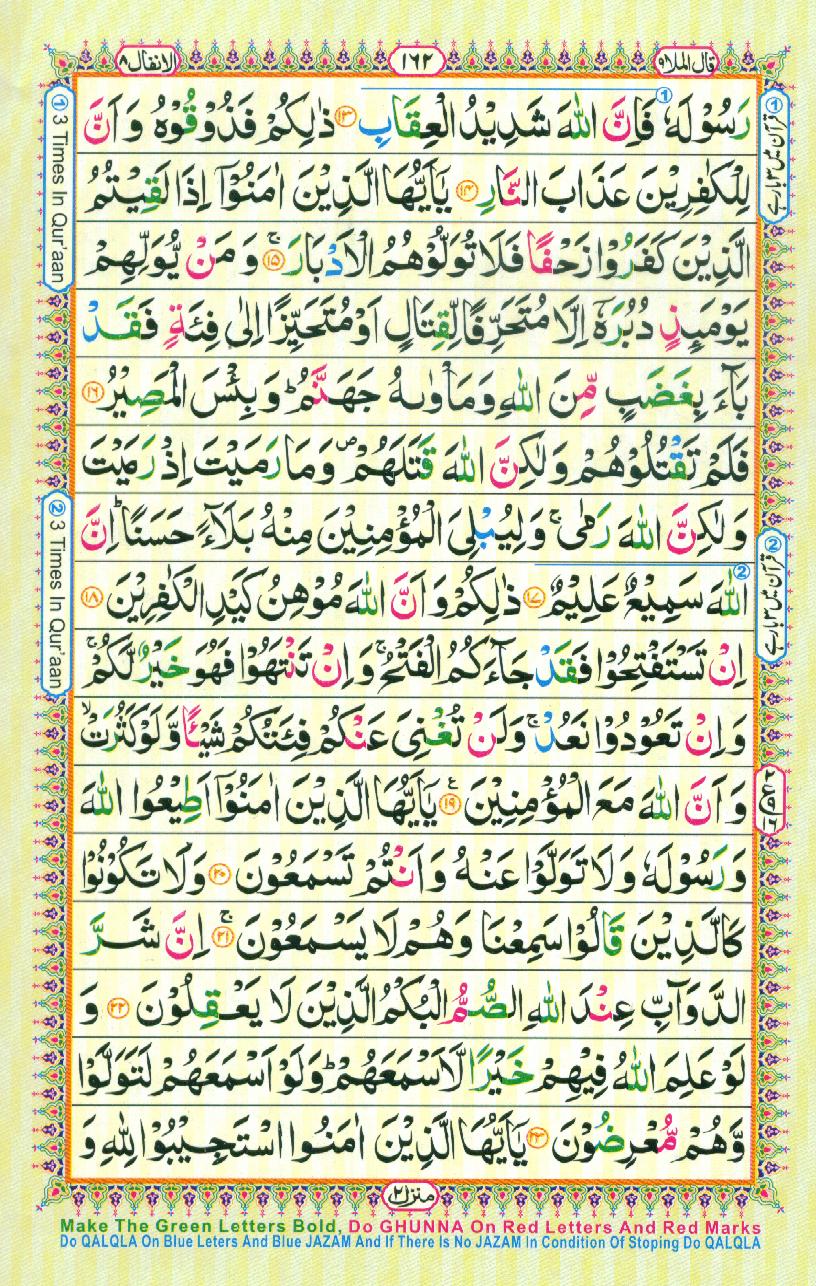 قال الملا ۹
۱۶۲
الانفال ۸
رَسُوْلَهٗ فَاِنَّ اللّٰهَ شَدِيْدُ الْعِقَابِ ۱۳ ذٰلِكُمْ فَذُوْقُوْهُ وَ اَنَّ
لِلْكٰفِرِيْنَ عَذَابَ النَّارِ ۱۴ يٰۤاَيُّهَا الَّذِيْنَ اٰمَنُوْۤا اِذَا لَقِيْتُمُ
الَّذِيْنَ كَفَرُوْا زَحْفًا فَلَا تُوَلُّوْهُمُ الْاَدْبَارَ ۚ ۱۵ وَ مَنْ يُّوَلِّهِمْ
يَوْمَىِٕذٍ دُبُرَهٗۤ اِلَّا مُتَحَرِّفًا لِّقِتَالٍ اَوْ مُتَحَيِّزًا اِلٰى فِئَةٍ فَقَدْ
بَآءَ بِغَضَبٍ مِّنَ اللّٰهِ وَ مَاْوٰىهُ جَهَنَّمُ ؕ وَ بِئْسَ الْمَصِيْرُ ۱۶
فَلَمْ تَقْتُلُوْهُمْ وَ لٰكِنَّ اللّٰهَ قَتَلَهُمْ ۪ وَ مَا رَمَيْتَ اِذْ رَمَيْتَ
وَ لٰكِنَّ اللّٰهَ رَمٰى ۚ وَ لِيُبْلِيَ الْمُؤْمِنِيْنَ مِنْهُ بَلَآءً حَسَنًا ؕ اِنَّ
اللّٰهَ سَمِيْعٌ عَلِيْمٌ ۱۷ ذٰلِكُمْ وَ اَنَّ اللّٰهَ مُوْهِنُ كَيْدِ الْكٰفِرِيْنَ ۱۸
اِنْ تَسْتَفْتِحُوْا فَقَدْ جَآءَكُمُ الْفَتْحُ ۚ وَ اِنْ تَنْتَهُوْا فَهُوَ خَيْرٌ لَّكُمْ ۚ
وَ اِنْ تَعُوْدُوْا نَعُدْ ۚ وَ لَنْ تُغْنِيَ عَنْكُمْ فِئَتُكُمْ شَيْـًٔا وَّ لَوْ كَثُرَتْ ۙ
وَ اَنَّ اللّٰهَ مَعَ الْمُؤْمِنِيْنَ ۱۹ ع يٰۤاَيُّهَا الَّذِيْنَ اٰمَنُوْۤا اَطِيْعُوا اللّٰهَ
وَ رَسُوْلَهٗ وَ لَا تَوَلَّوْا عَنْهُ وَ اَنْتُمْ تَسْمَعُوْنَ ۲۰ وَ لَا تَكُوْنُوْا
كَالَّذِيْنَ قَالُوْا سَمِعْنَا وَ هُمْ لَا يَسْمَعُوْنَ ۚ ۲۱ اِنَّ شَرَّ
الدَّوَآبِّ عِنْدَ اللّٰهِ الصُّمُّ الْبُكْمُ الَّذِيْنَ لَا يَعْقِلُوْنَ ۲۲ وَ
لَوْ عَلِمَ اللّٰهُ فِيْهِمْ خَيْرًا لَّاَسْمَعَهُمْ ؕ وَ لَوْ اَسْمَعَهُمْ لَتَوَلَّوْا
وَّ هُمْ مُّعْرِضُوْنَ ۲۳ يٰۤاَيُّهَا الَّذِيْنَ اٰمَنُوا اسْتَجِيْبُوْا لِلّٰهِ وَ
منزل ۲
① قرآن میں ۳ بار ہے
② قرآن میں ۳ بار ہے
① 3 Times In Qur'aan
② 3 Times In Qur'aan
Make The Green Letters Bold, Do GHUNNA On Red Letters And Red Marks
Do QALQLA On Blue Leters And Blue JAZAM And If There Is No JAZAM In Condition Of Stoping Do QALQLA